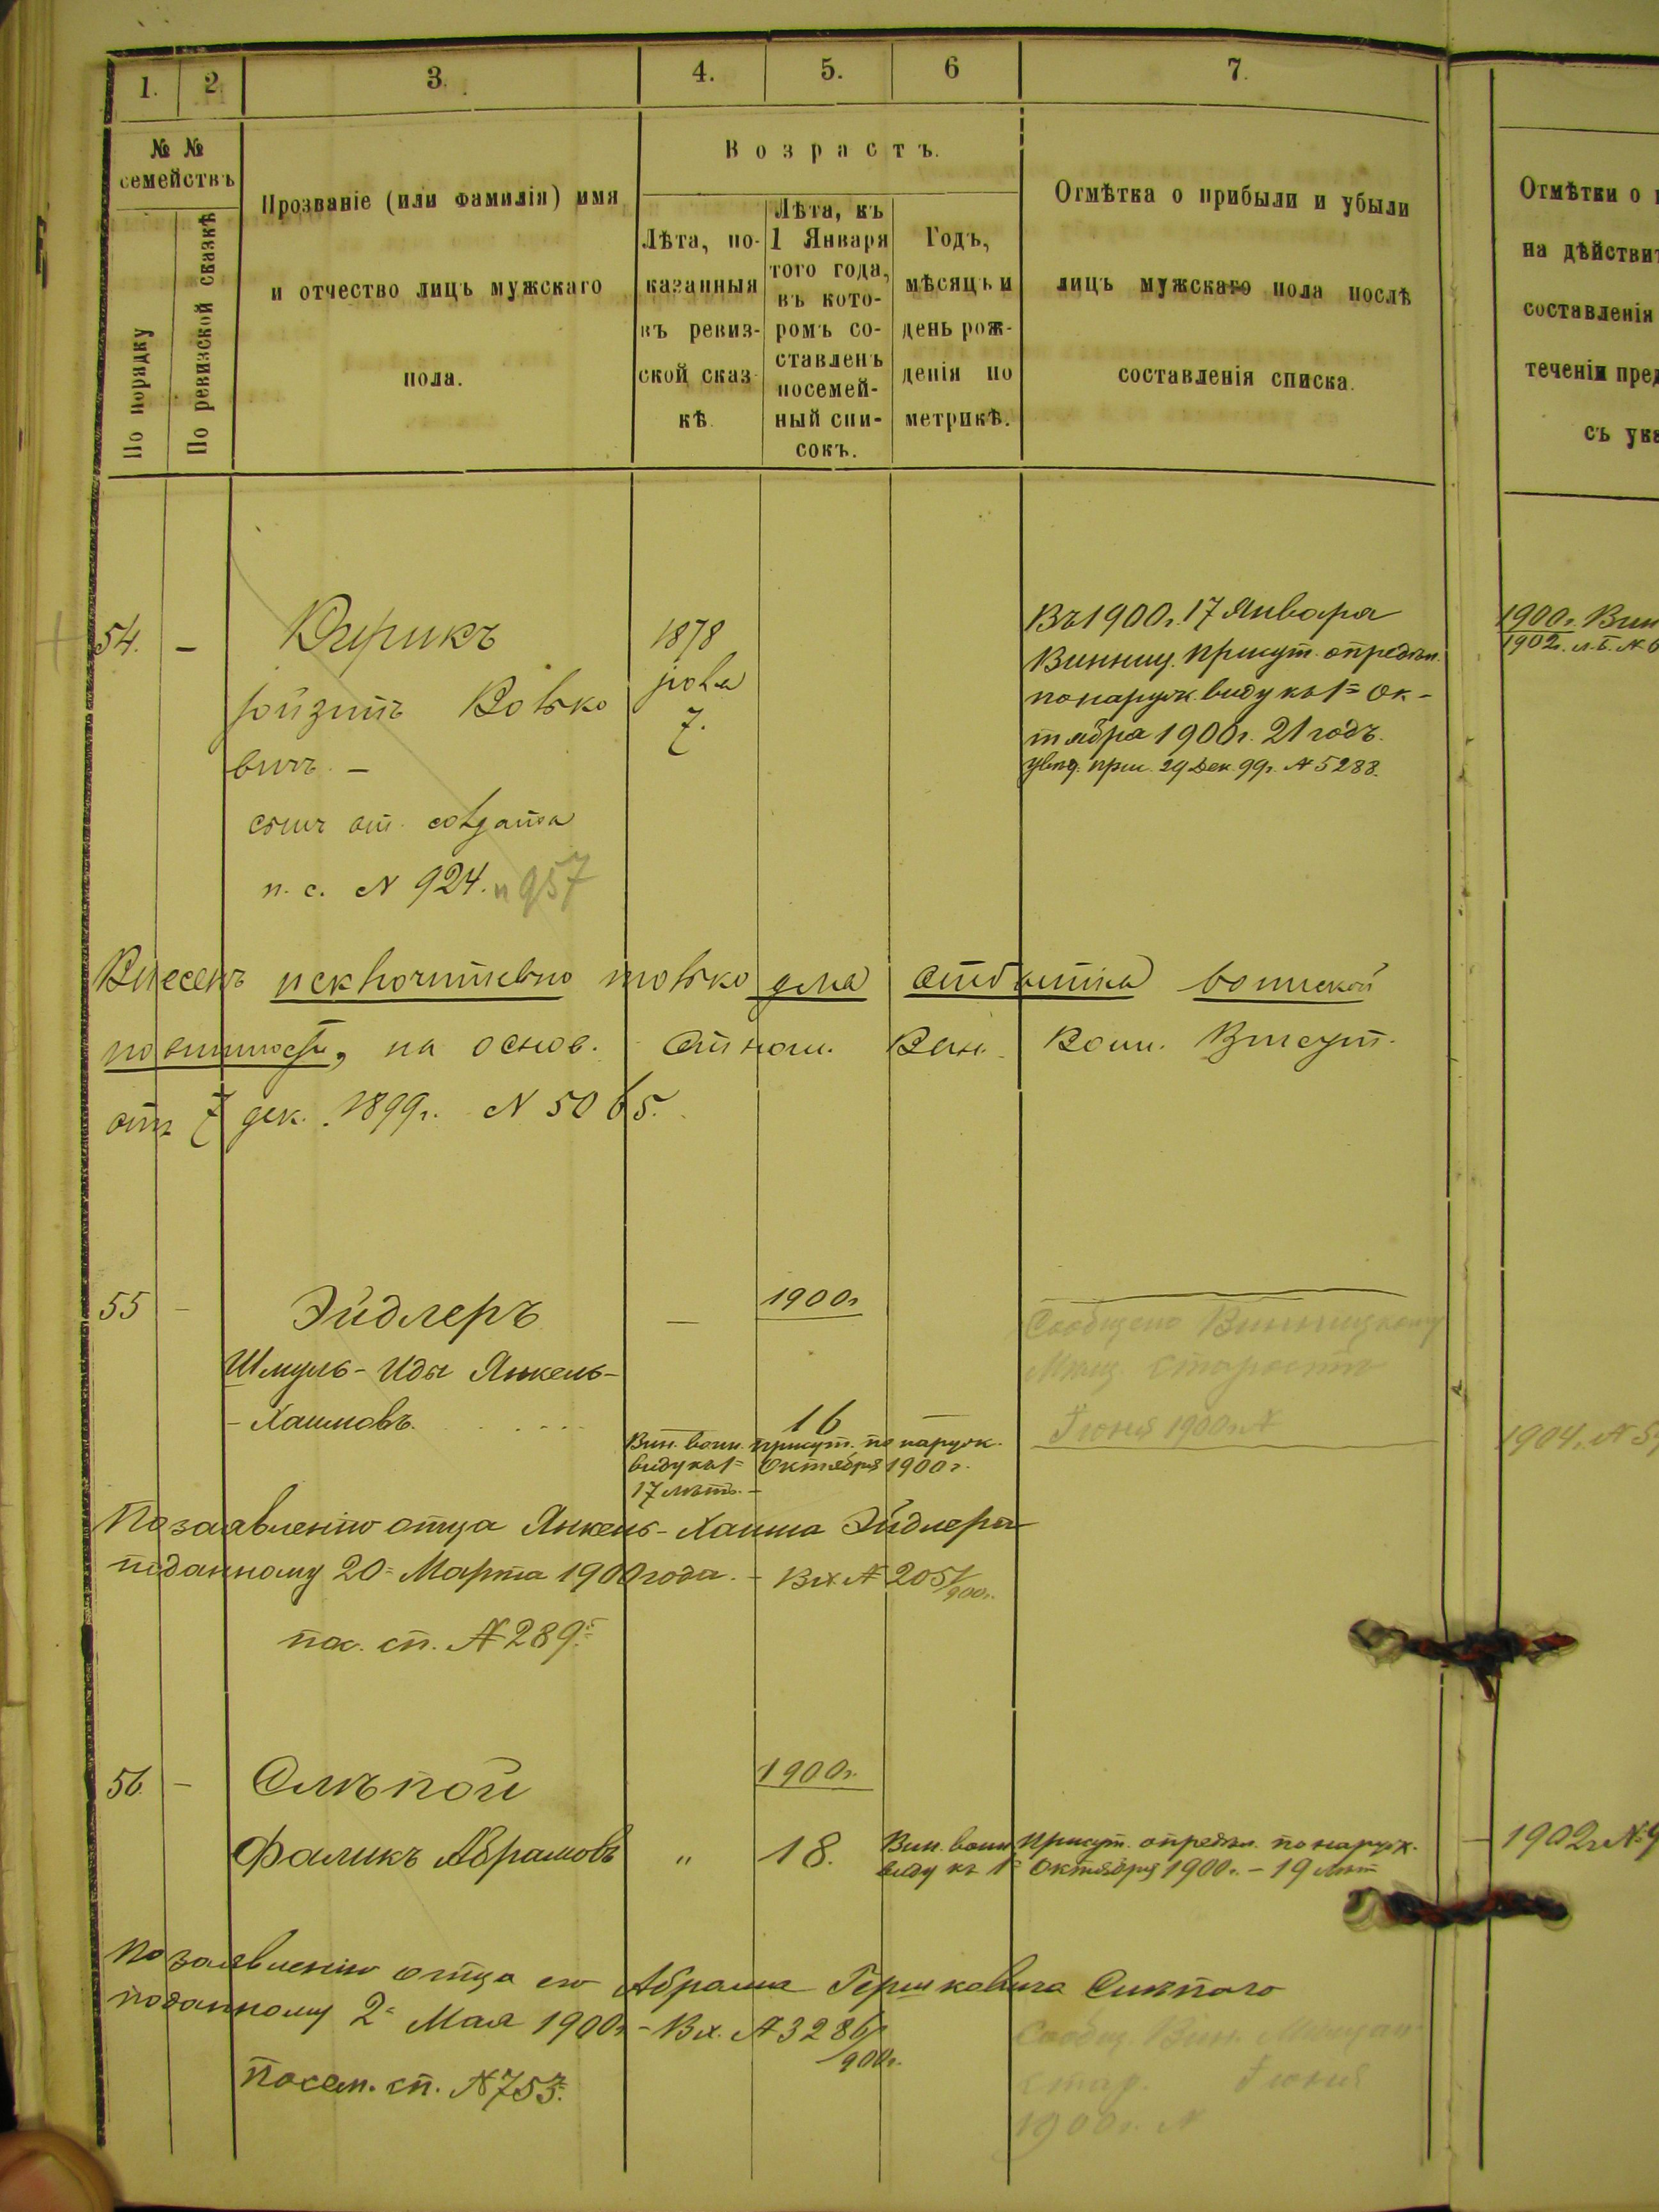 1.
2
3.
4.
5.
6
7.
№ №
семействъ
По порядку
По ревизской сказкѣ
Прозваніе (или Фамилія) имя
и отчество лицъ мужскаго
пола.
Возрастъ.
Лѣта, по-
казанныя
въ ревиз-
ской сказ-
кѣ.
Лѣта, къ
1 Января
того года,
въ кото-
ромъ со-
ставленъ
посемей-
ный спи-
сокъ.
Годъ,
мѣсяцъ и
день рож-
денія по
метрикѣ.
Отмѣтка о прибыли и убыли
лицъ мужскаго пола послѣ
составленія списка.
Отмѣтки о
на дѣйстви
составленія
теченіи пред
съ ука
54.
—
1878
7.
Волько
вичъ. —
сынъ от. солдата
п. с. № 924. и 957
Въ 1900 г. 17 Января
Винниц. присут. опредѣл.
по наруж. виду къ 1= Ок-
тября 1900 г. 21 годъ.
увѣд. прис. 29 Дек. 99 г. № 5288.
1900 г. Вин
1902 г.
Внесенъ исключительно только для отбытія воинской
повинности, на основ. отнош. Вин. Воин. Присут.
отъ 7 дек. 1899 г. N 5065.
55
—
Эйдлеръ
—
1900 г
Шмуль-Иды Янкель-
-Хаимовъ.
16
—
Вин. воин. присут. по наруж.
виду къ 1= Октября 1900 г.
17 лѣтъ. —
Сообщено Винницкому
Мѣщ. Старостѣ
Іюня 1900 г. №
1904 г. №
По заявленію отца Янкель-Хаима Эйдлера
поданному 20= Марта 1900 года. — Вх. № 2051/900 г.
пос. сп. № 289=
56.
—
Слѣпой
1900 г.
Фаликъ Абрамовъ
„
18.
Вин. воин. Присут. опредѣл. по наруж.
виду къ 1= Октября 1900 г. — 19 лѣт
— 1902 г №
По заявленію отца его Абрама Гершковича Слѣпого
поданному 2= Мая 1900 г. — Вх. № 3286/900 г.
посем. сп. № 753.
Сообщ. Вин. Мѣщан.
Стар. Іюня
1900 г. №